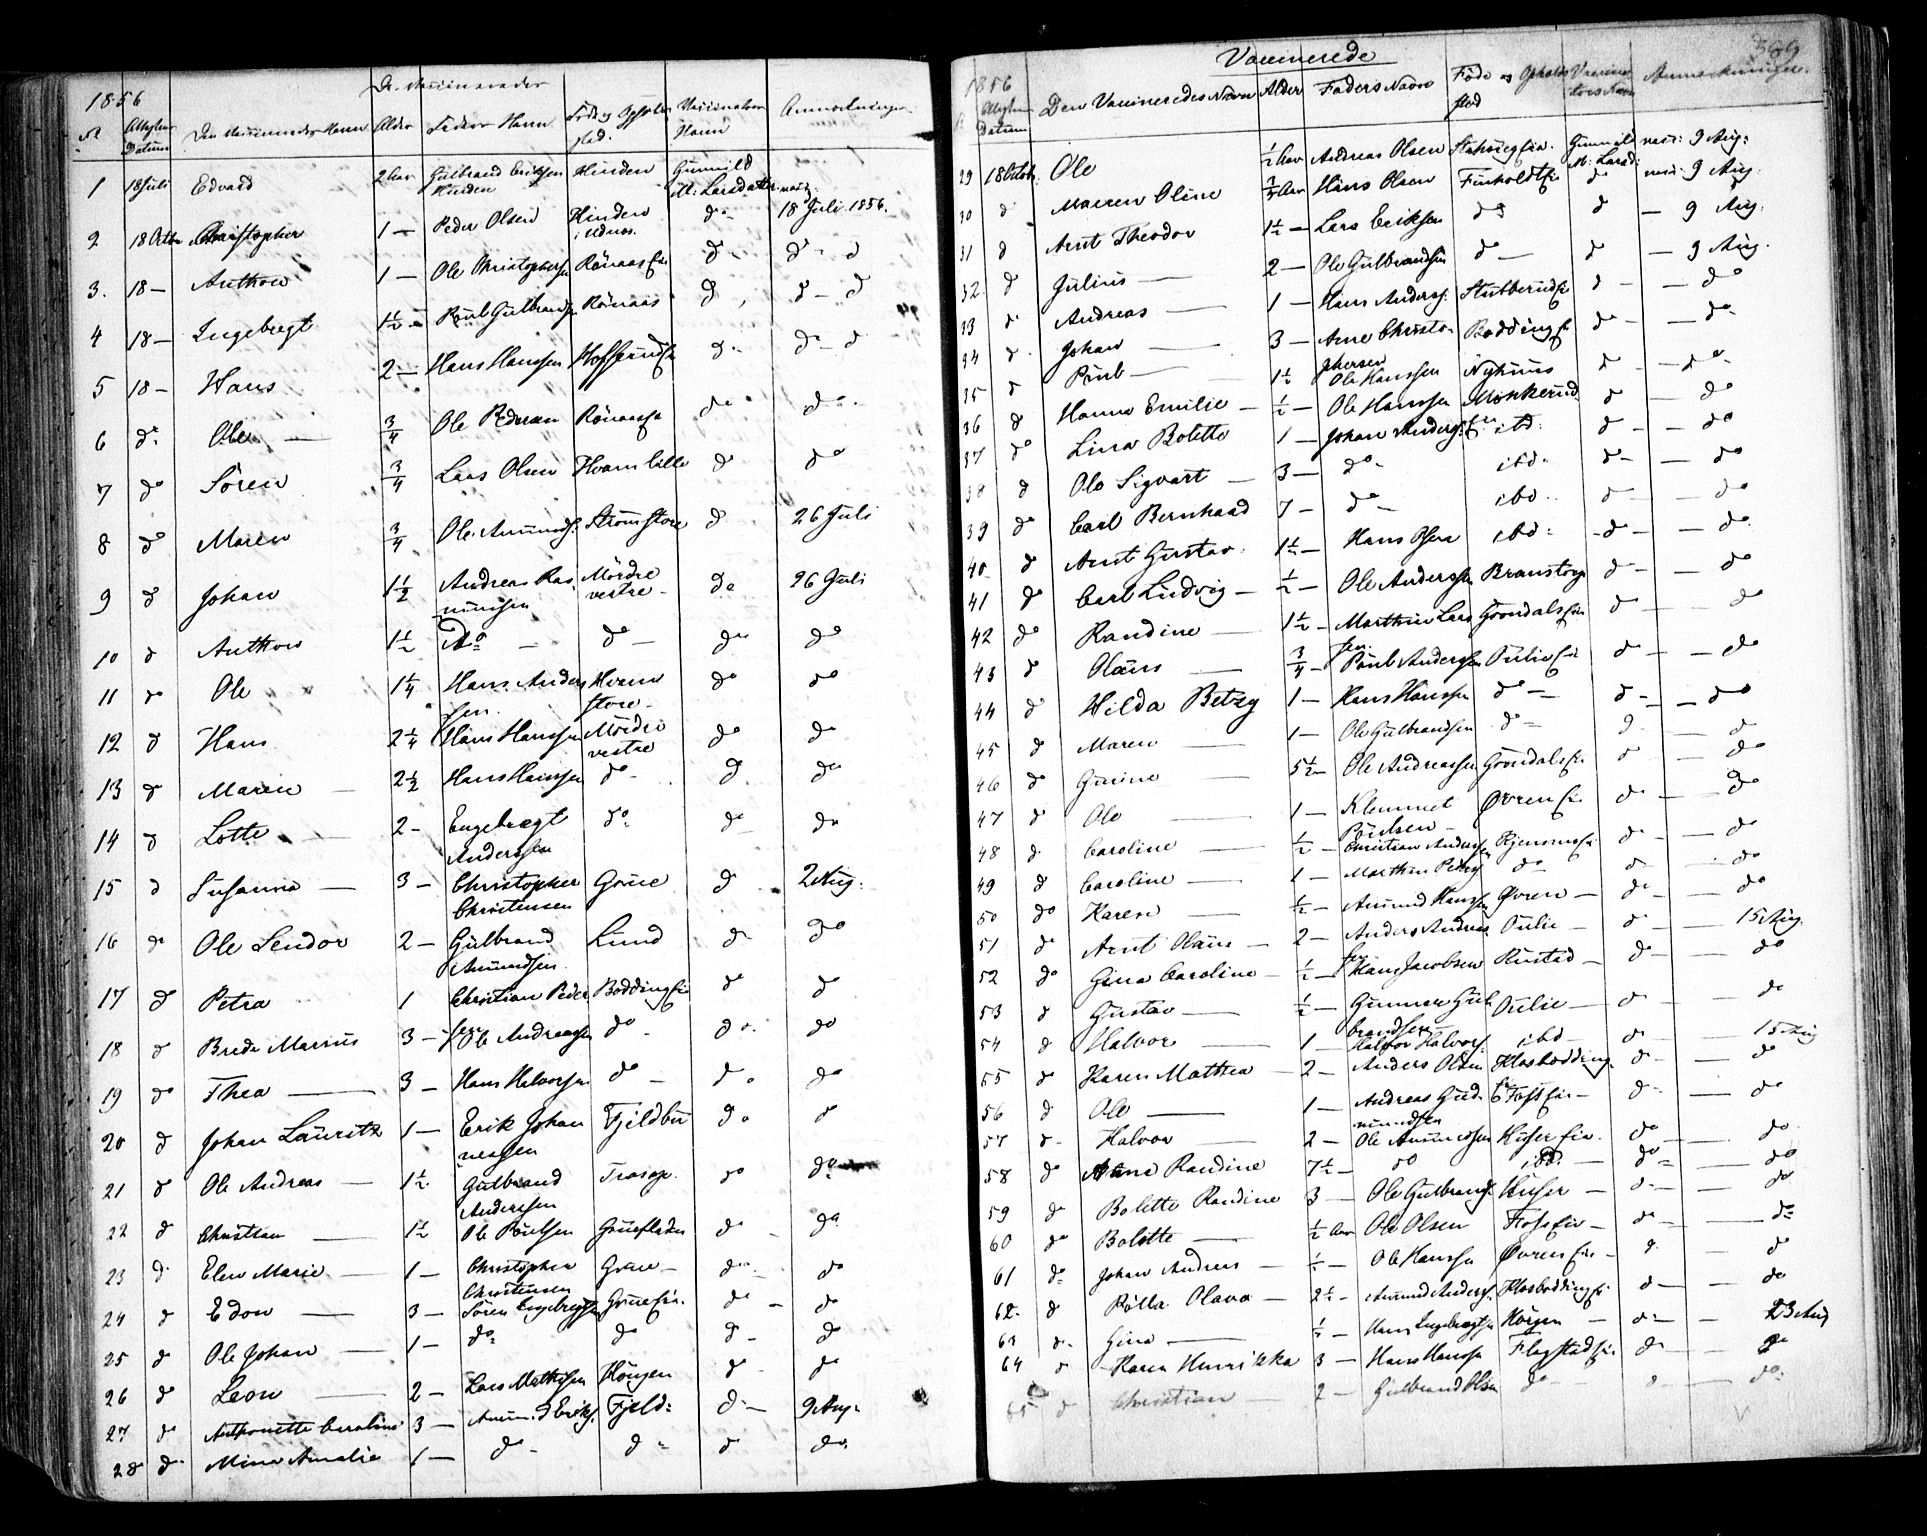 1856
No Attestens Datum Den Vaccineredes Navn Alder Faders Navn Føde og Opholds sted. Vaccinators Navn Anmærkninger
1 18 Juli Edvard 2 Aar Gulbrand Eriksen Hinden Hinden Gunnild M. Larsdatter
2 18 Octbr Christopher 1 — Peder Olsen Hinden i Udnæs. do 18 Juli 1856.
3. 18 — Anthon 1 — Ole Christophersen Rönaas Ei. do do — do
4 18 — Ingebregt 1½ — Poul Gulbrandsen Rönaas do do — do
5 18 — Hans 2 — Hans Hanssen do do — do
6 do Ole — ¾ Ole Pedersen Rönaas do do
7 do Sören ¾ Lars Olsen Hvam lille do do
8 do Maren ¾ Ole Amunds. Ström store do 26 Juli
9 do Johan 1½ Andreas Rasmussen Mördre vestre — do 26 Juli
10 do Anthon 1½ do — do — do do
11 do Ole 1¼ Hans Andersen Hvam store — do do
12 do Hans 2¼ Hans Hanssen Mördre vestre do do
13 do Maren — 2½ Hans Hanssen do — do do
14 do Lotte — 2 — Engebregt Anderssen do do do
15 do Susanna — 3 — Christopher Christensen Grue do 2 Aug.
16 do Ole Sendor 2 — Gulbrand Amundsen Lund do do
17 do Petra 1 Christian Pedersen Bodding Ei do do
18 do Brede Marius 3 — Ole Andreassen do do do
19 do Thea — 3 — Hans Halvorsen do — do do
20 do Johan Lauritz 1 — Erik Johannessen Fjeldbu do do
21 do Ole Andreas — 1½ Gulbrand Anderssen do do
22 do Christian — 1½ Ole Poulsen do do
23 do Elen Marie — 1 — Christopher Christensen Grue — do do
24 do Edon — 3 — Sören Engebregtsen Grue Ei. do — do
25 do Ole Johan — 1 — do do do — do
26 do Leon — 2 — Lars Mathisen do do
27 do Anthonette Caroline 3 — Amund Eriks. Fjeld: do — 9 Aug.
28 do Mina Amalie 1 — do — do do do
Vaccinerede
1856
Attestens Datum Den Vaccineredes Navn Alder Faders Navn Føde og Opholds sted Vaccinators Navn Anmærkninger.
29 18 Octob. Ole ½ Aar Andreas Olsen Gunnild M. Larsd: 9 Aug:
30 do Maren Oline ¾ Aar Hans Olsen Finholdt Ei do 9 Aug.
31 do Arnt Theodor 1½ — Lars Eriksen do do — 9 Aug.
32. do Julius — 2 — Ole Gulbrandsen do — do — 9 Aug.
33 do Andreas — 1 — Hans Anders. Stubberud Ei do — — do
34 do Johan — 3 — Arne Christophersen Bodding Ei do — — do
35 do Poul — 1½ Ole Hanssen Nyhuus do — — do
36 do Hanna Emilie — ½ — Ole Hanssen Mönkerud Ei do — do
37 do Lina Bolette 1 — Johan Anders. ibd: do — — do
38 do Ole Sigvart — 3 — do — ibd. do — — do
39 do Carl Bernhard 7 — do — ibd. do — — do
40 do Arnt Gustav. 1½ — Hans Olsen ibd: do — — do
41 do Carl Ludvig — ½ — Ole Anderssen do — — do
42 do Randine — 1½ — Marthin Larssen Gröndals Ei do — — do
43 do Olaus — ¾ — Poul Anderssen Oulie Ei do — — do
44 do Hilda Betzy 1 — Hans Hanssen do — do — — do
45 do Maren — 1 — Ole Gulbrandsen do — do — do
46 do Gurine — 5½ — Ole Andreassen Gröndals Ei do — do
47 do Ole — 1 — Klemmet Poulsen — Øvren Ei do — — do
48 do Caroline — ½ — Christian Anderssen do — — do
49 do Caroline — 1 — Marthin Peders. do do — do
50 do Karen — ½ — Amund Hanssen Øvren — do — — do
51 do Arnt Olaus — 2 — Anders Andreassen Oulie — do — — 15 Aug.
52 do Gina Caroline — ½ — Hans Jacobsen Rustad — do — — do
53 do Gustav — ½ — Gunnar Gulbrandsen — Oulie — do — — do
54 do Halvor — 1 — Halvor Halvors. ibd — do — 15 Aug
55 do Karen Mathea — 2 — Anders Olsen Klosbodding Ei do — — do
56 do Ole — 1 — Andreas Gudmundsen Foss Ei — do — — do
57 do Halvor — 2 — Ole Amundsen Huser Ei. do — — do
58 do Anne Randine 7½ — do ibd. — do — — do
59 do Bolette Randine 3 — Ole Gulbrands. Huser — do — — do
60 do Bolette — ½ Aar Ole Olsen Foss Ei — do — — do
61 do Johan Andreas — ½ — Ole Hanssen Øvren Ei — do — — do
62. do Olava — 2½ — Amund Anders. Klosbodding Ei do — — do
63 do Gina — ½ — Hans Engebregtsen do — — 23 Aug
64 do Karen Henrikka 3 — Hans Hanssen Flagstad Ei do — — do
65 do Christian — 2 — Gulbrand Olsen do — do — — do